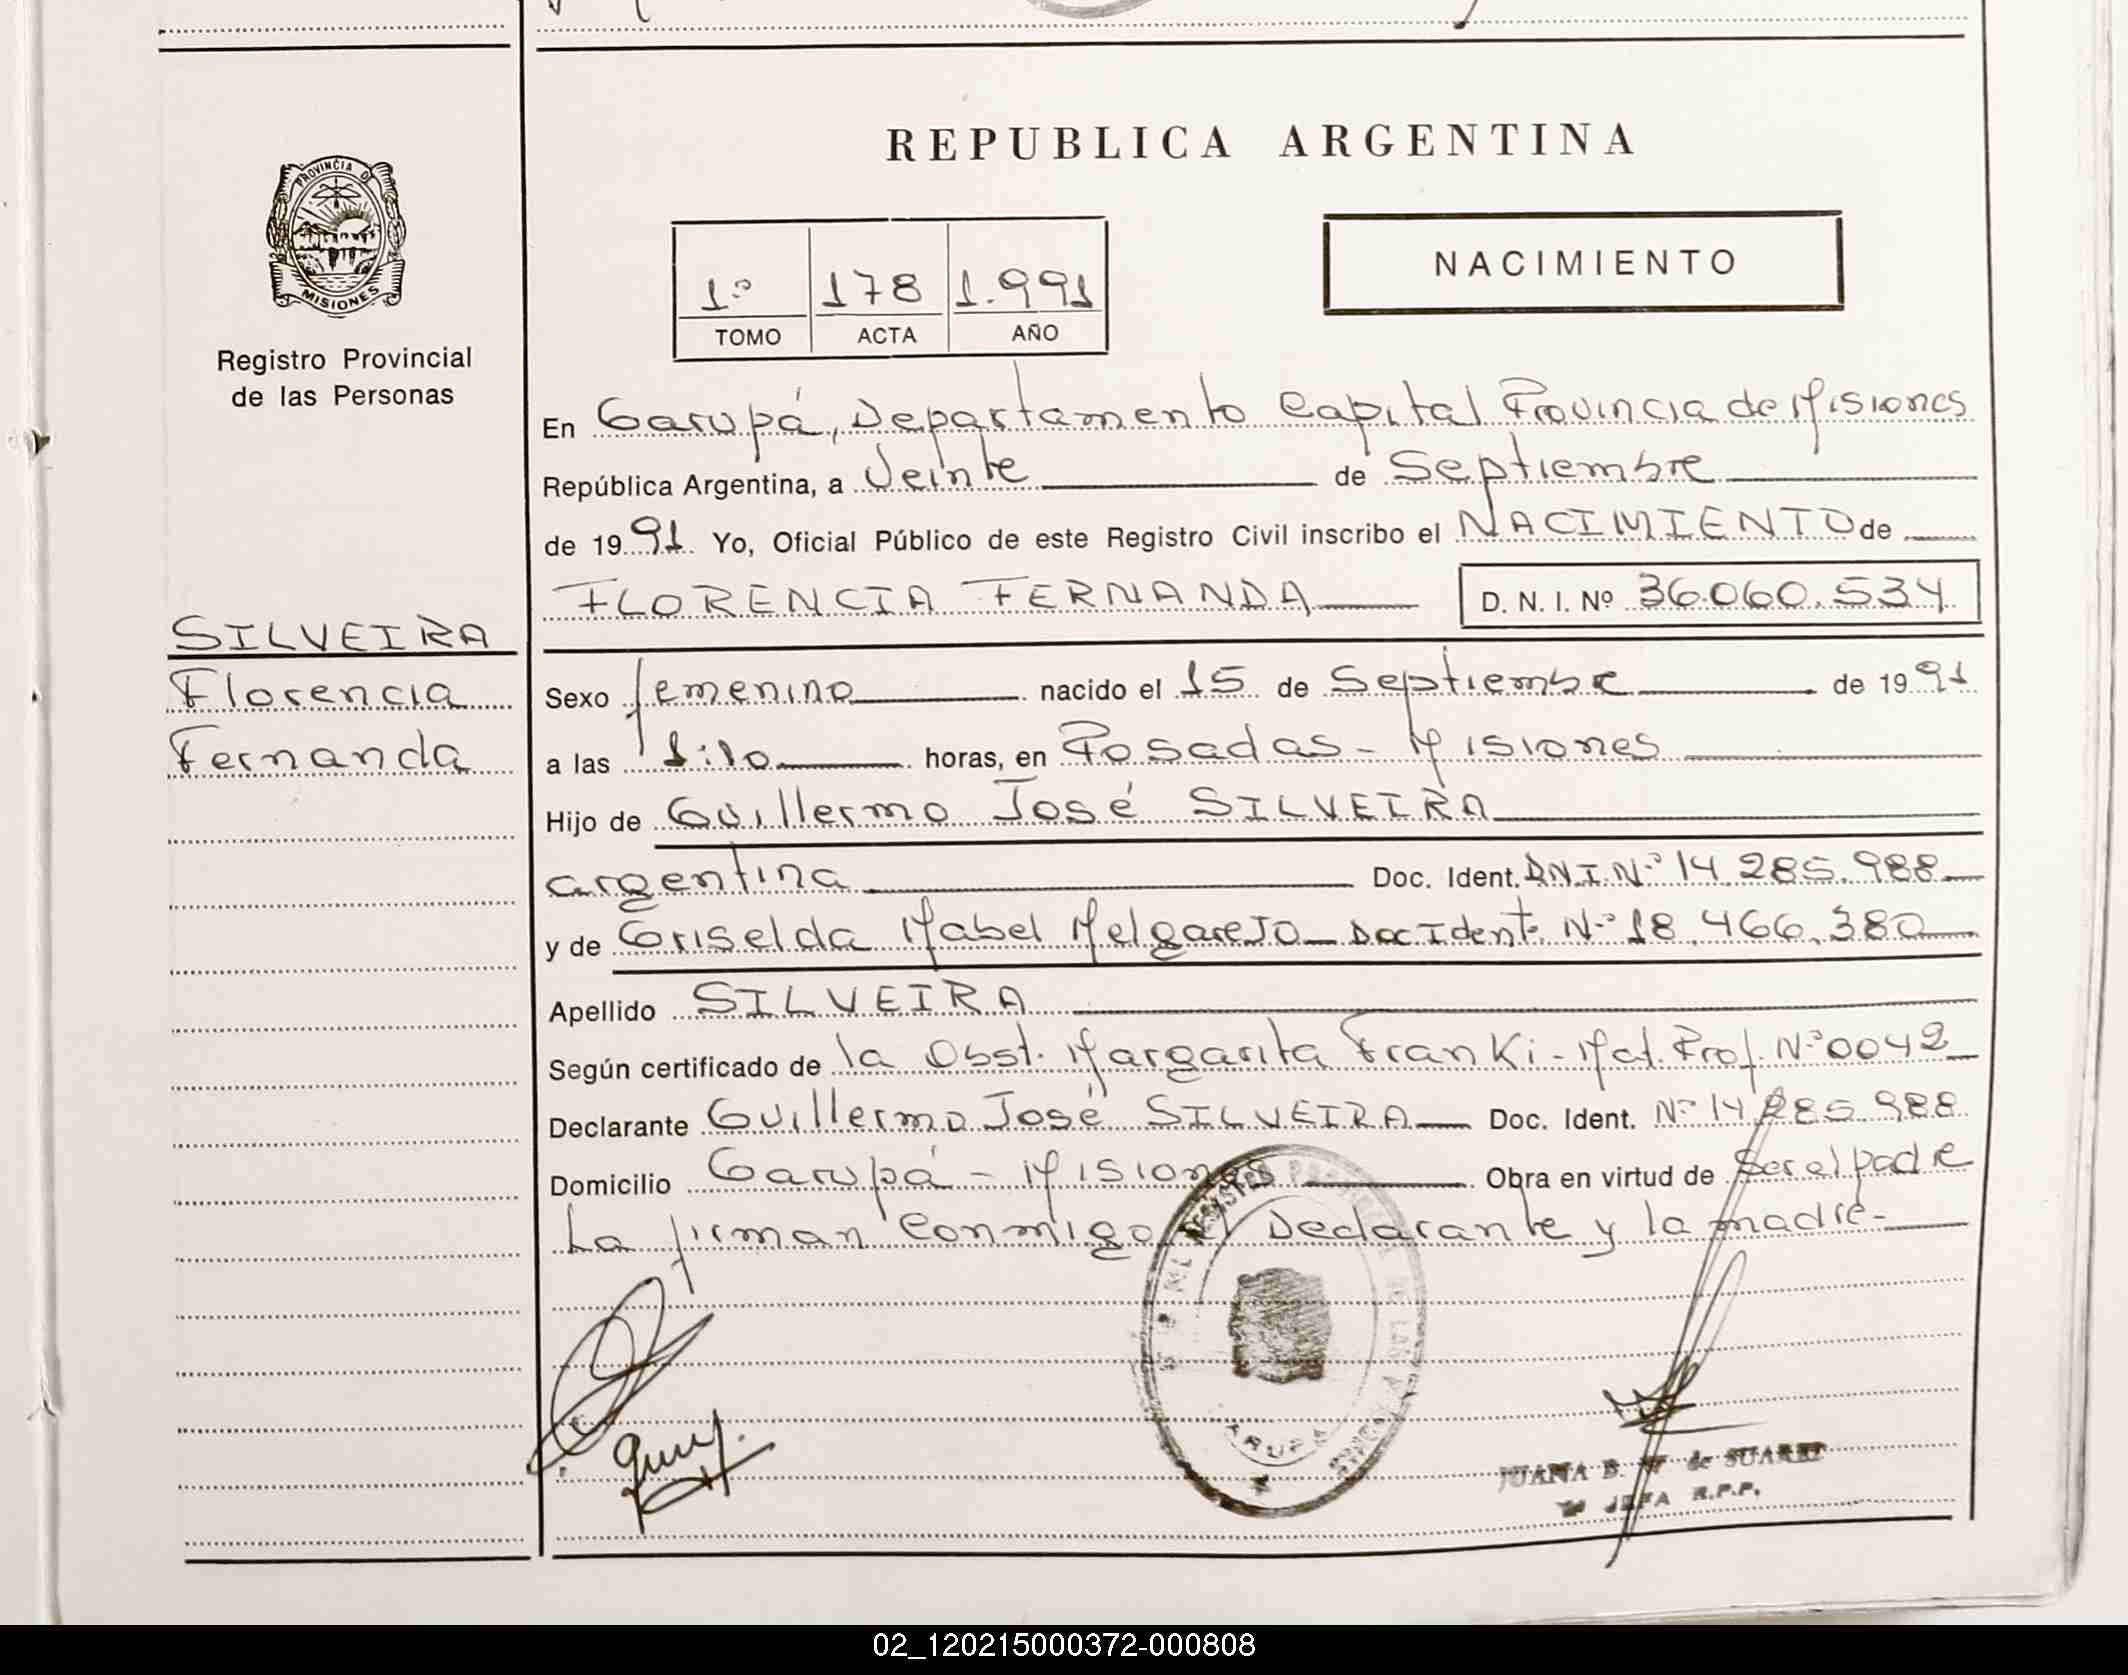 REPUBLICA ARGENTINA
PROVINCIA DE
MISIONES
Registro Provincial
de las Personas
1º 178 1.991
TOMO ACTA AÑO
NACIMIENTO
En Garupá, Departamento Capital Provincia de Misiones
República Argentina, a Veinte de Septiembre
de 1991 Yo, Oficial Público de este Registro Civil inscribo el NACIMIENTO de
FLORENCIA FERNANDA D. N. I. Nº 36.060.534
SILVEIRA
Florencia
Fernanda
Sexo femenino nacido el 15 de Septiembre de 1991
a las horas, en Posadas - Misiones
Hijo de Guillermo José SILVEIRA
argentina Doc. Ident. D.N.I. Nº 14.285.988
y de Griselda Mabel Melgarejo Doc Ident. Nº 18.466.380
Apellido SILVEIRA
Según certificado de la Obst. Margarita Franki - Mat. Prof. Nº 0042
Declarante Guillermo José SILVEIRA Doc. Ident. Nº 14.285.988
Domicilio Garupá - Misiones Obra en virtud de Ser el padre
La firman Conmigo el Declarante y la madre-
JUANA B. de SUAREZ
JEFA R.P.P.
02_120215000372-000808